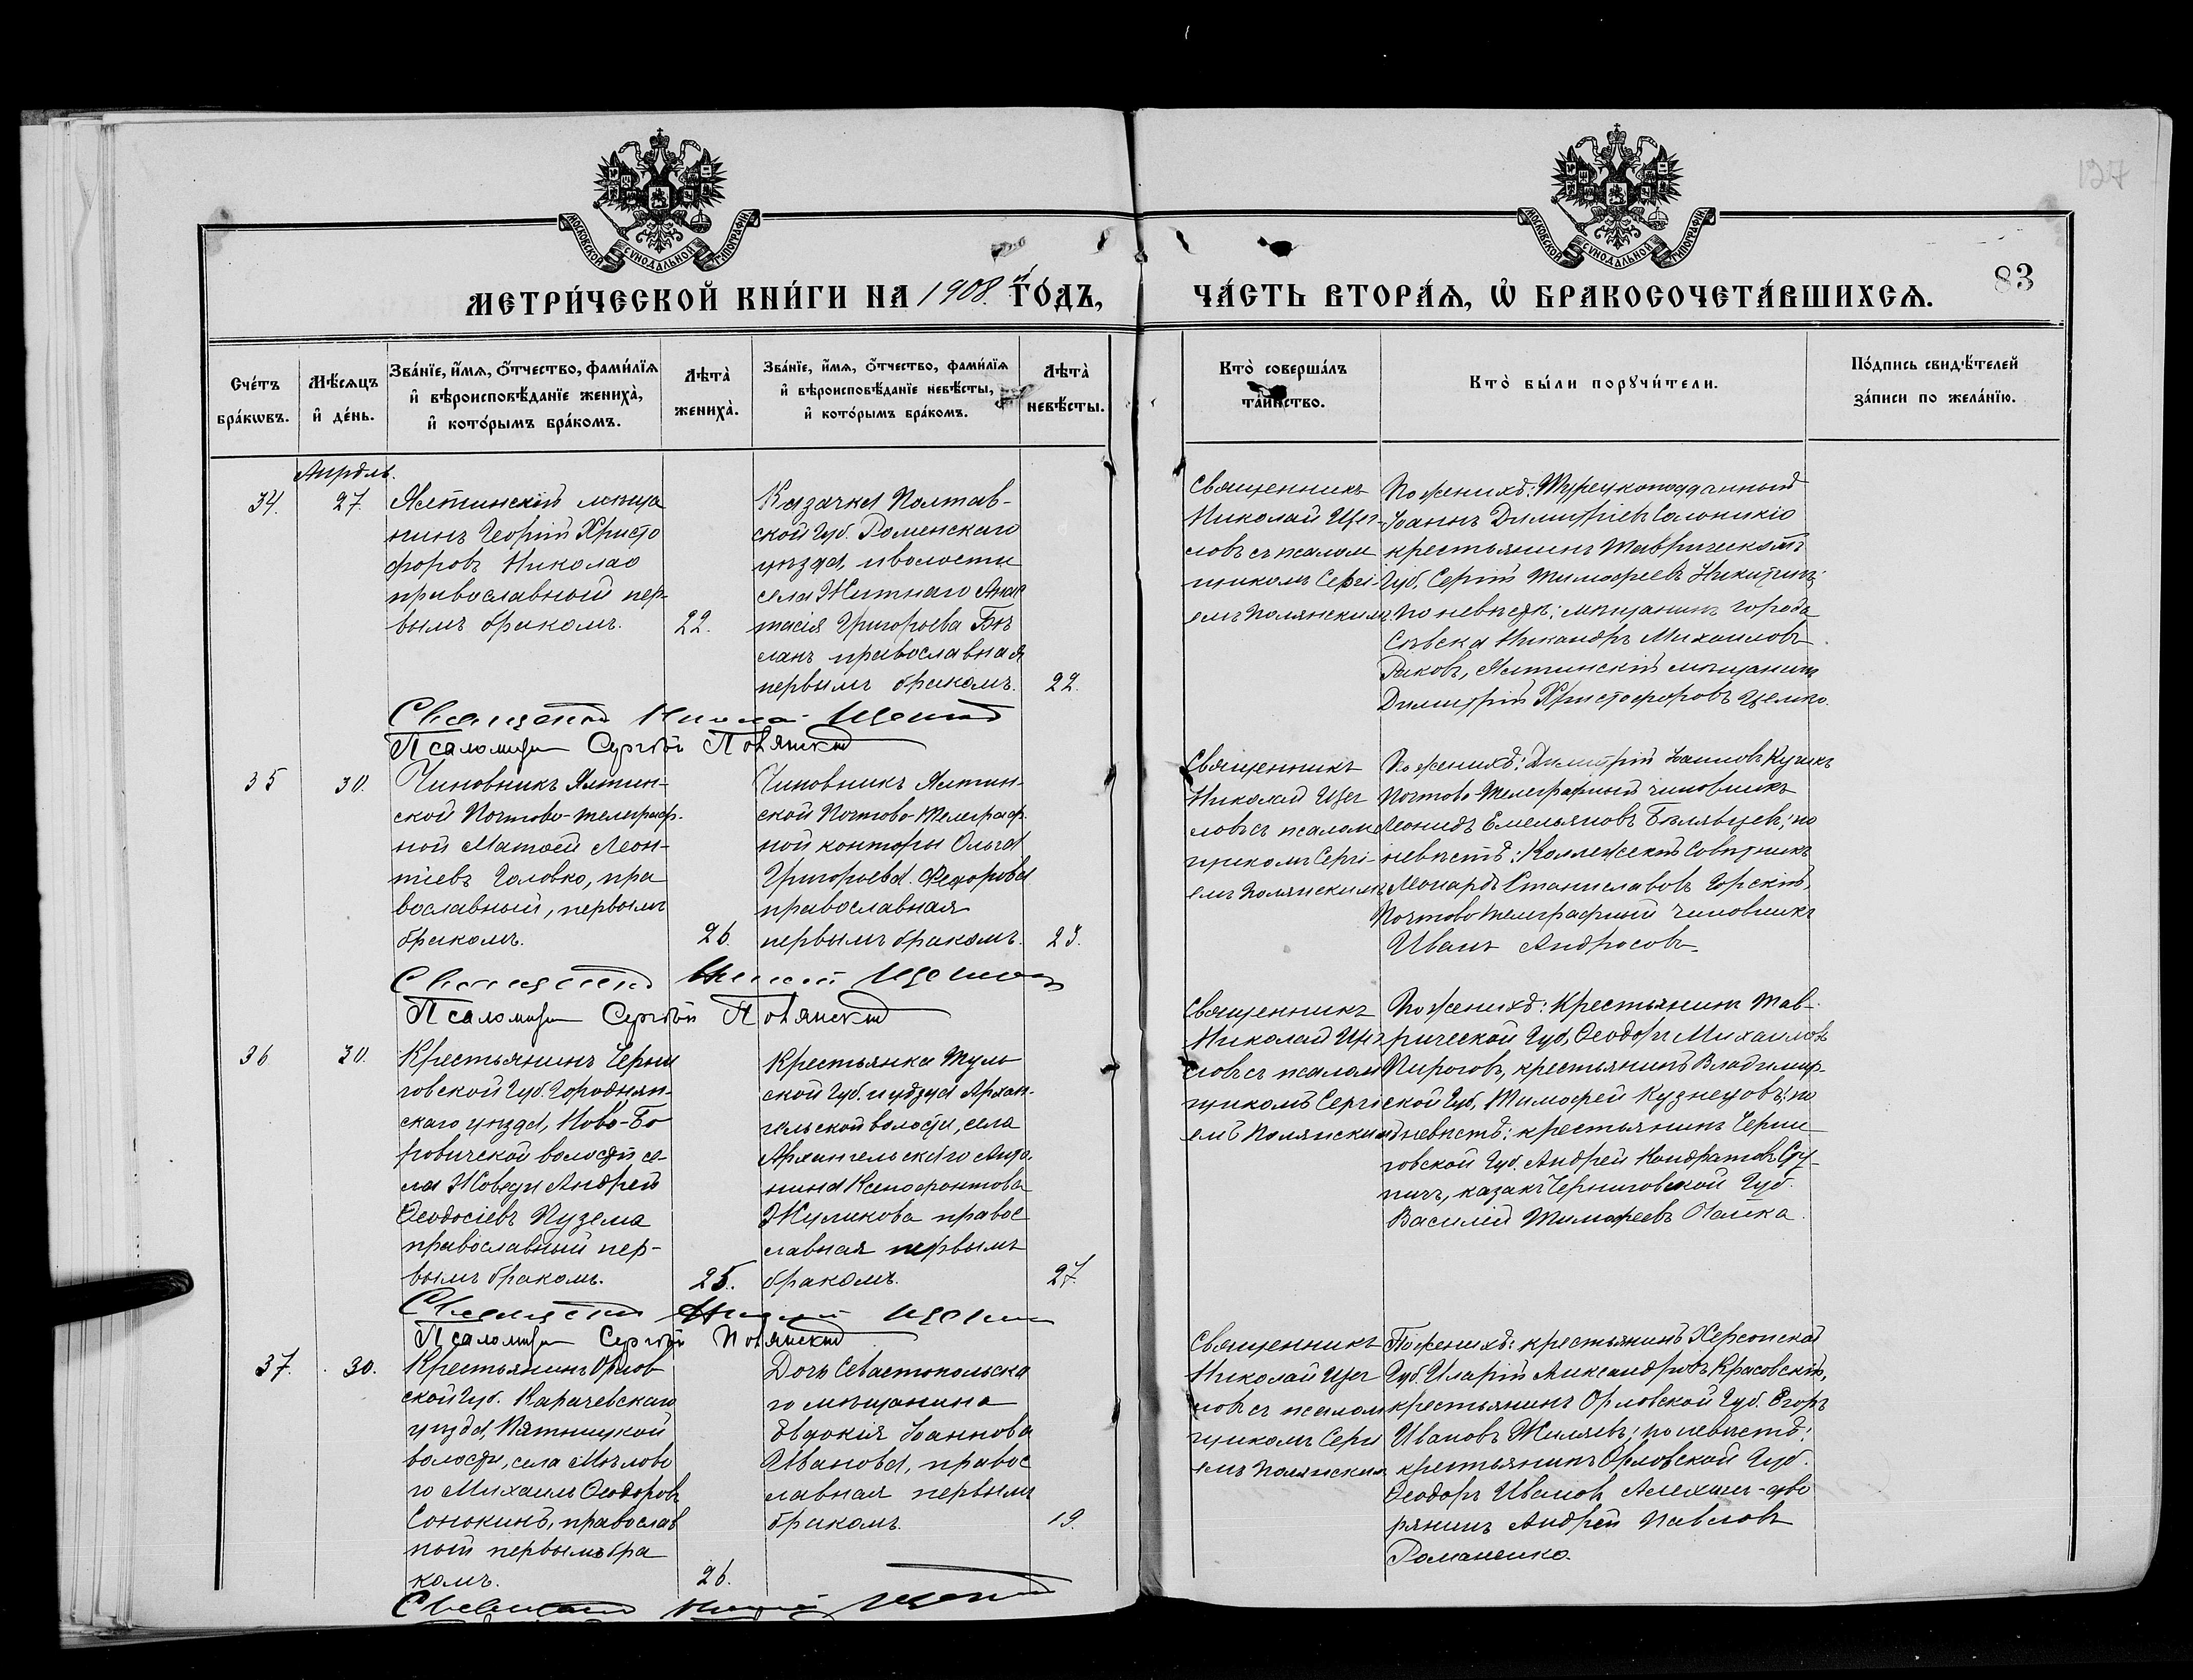 127
МОСКОВСКОЙ СУНОДАЛЬНОЙ ТИПОГРАФІИ
МОСКОВСКОЙ СУНОДАЛЬНОЙ ТИПОГРАФІИ
83
МЕТРИ́ЧЕСКОЙ КНИ́ГИ НА 1908. ГО́ДЪ,
ЧА́СТЬ ВТОРА́Я, Ѡ҆ БРАКОСОЧЕТА́ВШИХСЯ.
Сче́тъ бра́кѡвъ.
Мѣ́сяцъ и҆ де́нь.
Зва́нїе, и҆́мя, ѻ҆́тчество, фами́лїя
и҆ вѣроисповѣ́данїе жениха̀,
и҆ кото́рымъ бра́комъ.
Лѣта̀ жениха̀.
Зва́нїе, и҆́мя, ѻ҆́тчество, фами́лїя
и҆ вѣроисповѣ́данїе невѣ́сты,
и҆ кото́рымъ бра́комъ.
Лѣта̀ невѣ́сты.
Кто̀ соверша́лъ
та́инство.
Кто̀ бы́ли порꙋчи́тели.
По́дпись свидѣ́телей
за́писи по жела́нїю.
Апрѣль.
34.
27.
Ялтинскій мѣща
нинъ Георгій Христо
форовъ Николао
православный пер-
вымъ бракомъ.
22.
Казачка Полтав-
ской Губ. Роменскаго
уѣзда, и волости
села Житнаго Анас
тасія Григорьева
православная
первымъ бракомъ.
22.
Священникъ
Николай Щег-
ловъ съ псалом
щикомъ Сергі-
емъ Полянскимъ.
По женихѣ: Турецкоподданный
Іоаннъ Димитріевъ Солоникіо
крестьянинъ Таврической
Губ. Сергій Тимофеевъ Никитинъ;
по невѣстѣ: мѣщанинъ города
Сѣвска Никандръ Михаиловъ
Раковъ, Ялтинскій мѣщанинъ
Димитрій Христофоровъ
Священникъ Николай Щегловъ
Псаломщикъ Сергѣй Полянскій
35
30.
Чиновникъ Ялтин-
ской Почтово-телеграф-
ной Матѳей Леон-
тіевъ Головко, пра
вославный, первымъ
бракомъ.
26.
Чиновникъ Ялтин-
ской Почтово-Телеграф
ной конторы Ольга
Григорьева Федорова
православная
первымъ бракомъ.
23.
Священникъ
Николай Щег
ловъ съ псалом
щикомъ Сергі-
емъ Полянскимъ
По женихѣ: Димитрій Іоанновъ Кучикъ
Почтово-Телеграфный чиновникъ
Леонидъ Емельяновъ Белявцев; по
невѣстѣ: Коллежскій Совѣтникъ
Леонардъ Станиславовъ Горскій,
Почтово телеграфный чиновникъ
Иванъ Андросовъ
Священникъ Николай Щегловъ
Псаломщикъ Сергѣй Полянскій
36
30.
Крестьянинъ Черни
говской Губ. Городнян-
скаго уѣзда, Ново-Бо
ровичской волости се-
ла Жоведи Андрей
Ѳеодосіевъ Кузема
православный пер-
вымъ бракомъ.
25.
Крестьянка Туль
ской Губ. и уѣзда Архан-
гельской волости, села
Архангельскаго Анто
нина Ксенофонтова
Жуликова правос
славная первымъ
бракомъ.
27.
Священникъ
Николай Щег
ловъ съ псалом
щикомъ Серги
емъ Полянским
По женихѣ: Крестьянинъ Тав-
рической Губ, Ѳеодоръ Михаиловъ
Пироговъ, крестьянинъ Владимир-
ской Губ, Тимофей Кузнецовъ; по
невѣстѣ: крестьянинъ Черни
говской Губ. Андрей Кондратовъ Сту
пичъ, казакъ Черниговской Губ.
Василій Тимофеевъ
Священникъ Николай Щегловъ
Псаломщикъ Сергѣй Полянскій
37.
30.
Крестьянинъ Орлов
ской Губ. Карачевскаго
уѣзда, Пятницкой
волости, села Мылово
го Михаилъ Ѳеодоровъ
Сонюкинъ, православ
ный первымъ бра
комъ.
26.
Дочь Севастопольска
го мѣщанина
Евдокія Іоаннова
Иванова, правос
лавная первымъ
бракомъ.
19.
Священникъ
Николай Щег
ловъ съ псалом
щикомъ Серги
емъ Полянским
По женихѣ: крестьянинъ Херсонской
Губ. Иларій Александровъ Красовскій,
крестьянинъ Орловской Губ. Егоръ
Ивановъ Жиляевъ; по невѣстѣ:
крестьянинъ Орловской Губ.
Ѳеодоръ Ивановъ Алехинъ-дво
рянинъ Андрей Павловъ
Романенко.
Священникъ Николай Щегловъ